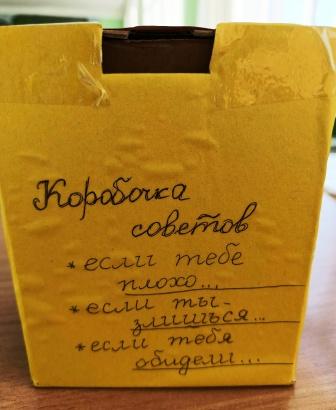 Коробочка
советов
* если тебе
плохо...
* если ты-
злишься...
* если тебя
обидели...